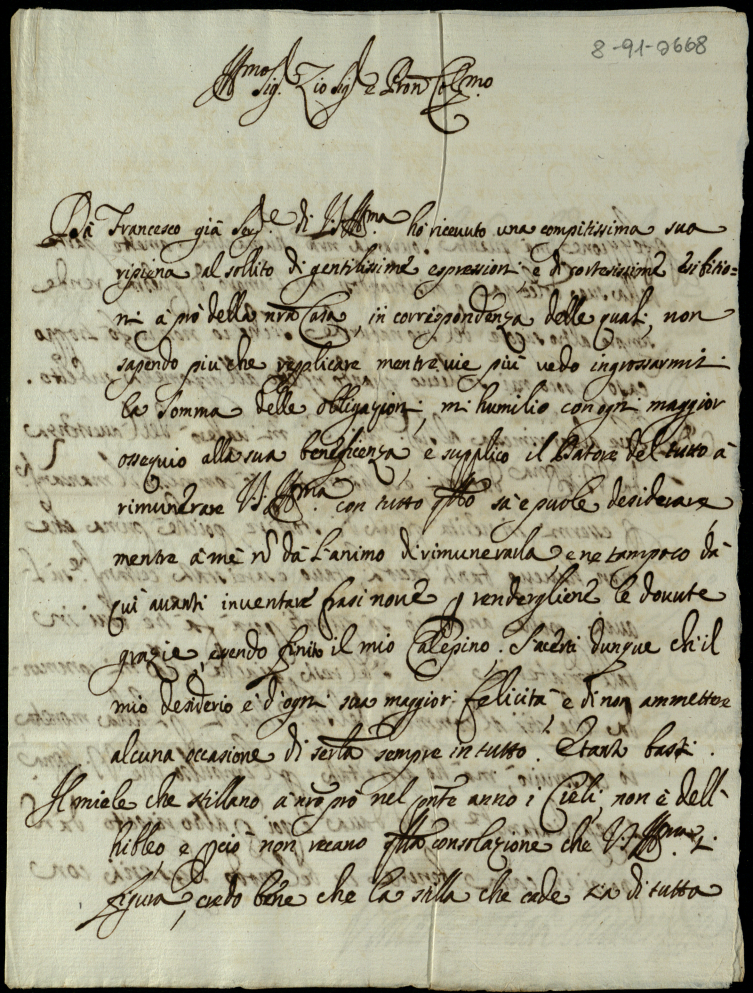 8-91-2668
Ill.mo Sig. Zio Sig. e Pron Col.mo
Dà Francesco già Ser.e di V.S. Ill.ma hò ricevuto una compitissima sua
ripiena al sollito di gentilissime espressioni e di cortesissime esibitio=
ni à prò della nra Casa, in corrispondenza delle quali, non
sapendo più che repplicare mentre vie più vedo ingrossarmisi
la somma delle obligazioni, mi humilio con ogni maggior
ossequio alla sua beneficenza, e supplico il Datore del tutto à
rimunerare V.S. Ill.ma con tutto qllo sà e puole desiderare
mentre à me nō dà l'animo di rimunerarla, e ne tampoco dà
qui avanti inventare frasi nove p rendergliene le dovute
grazie, avendo finito il mio Calepino. S'acerti dunque ch'il
mio desiderio è d'ogni sua maggior felicità e di non ammettere
alcuna occasione di servirla sempre in tutto. E tanto basti.
Il miele che stillano à nro prò nel pnte anno i Cieli, non è dell'
hibleo, e pciò non recano qlla consolazione che V.S. Ill.ma si
figura, credo bene che la stilla che cade sia di tutta